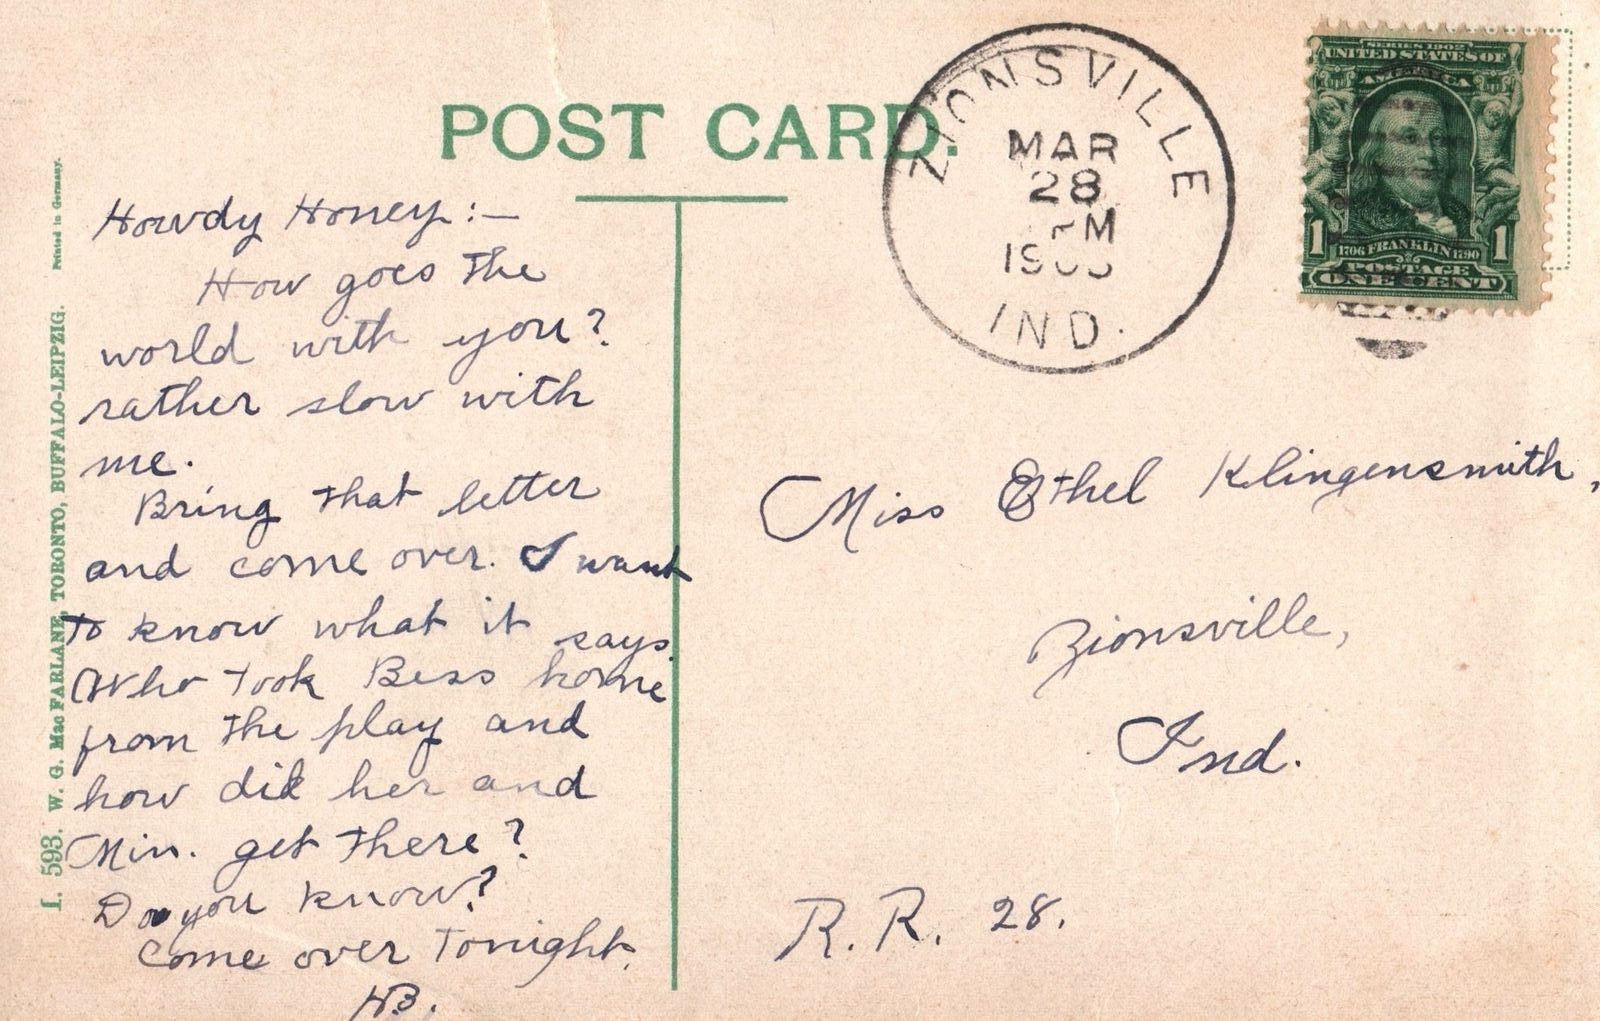 POST CARD.
ZIONSVILLE
MAR
28
M
IND.
SERIES 1902
UNITED STATES OF
AMERICA
1 1
1706 FRANKLIN 1790
POSTAGE
ONE CENT
Howdy Honey:—
How goes the
world with you?
rather slow with
me.
Bring that letter
and come over. I want
to know what it says.
Who took Bess home
from the play and
how did her and
Min. get there?
Do you know?
Come over Tonight.
HB.
Miss Ethel Klingensmith,
Zionsville,
Ind.
R. R. 28.
I. 593. W. G. MacFARLANE, TORONTO, BUFFALO-LEIPZIG. Printed in Germany.